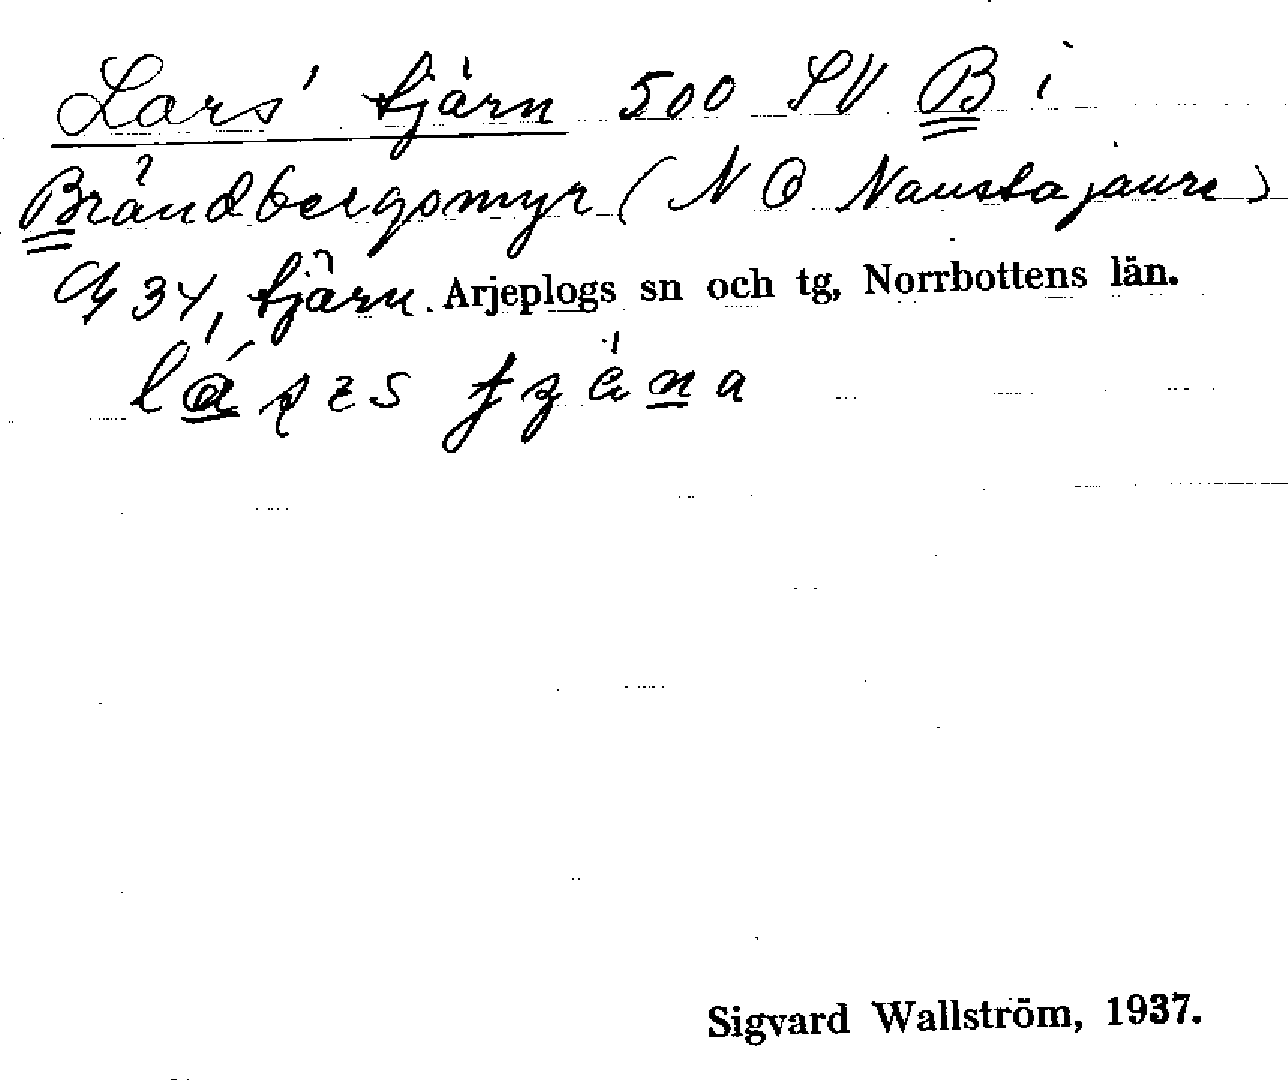 Lars' tjärn 500 SV B i
Brändbergsmyr (NO Naustajaure)
34, tjärn. Arjeplogs sn och tg, Norrbottens län.
Sigvard Wallström, 1937.